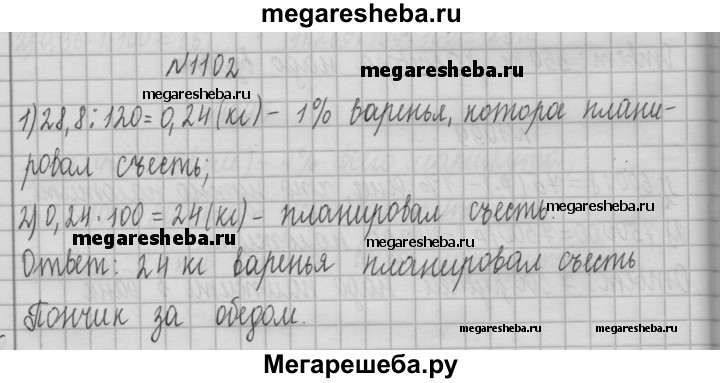 megaresheba.ru
N1102
megaresheba.ru
megaresheba.ru
1) 28,8 : 120 = 0,24 (кг) - 1% варенья, которое плани-
ровал съесть;
2) 0,24 · 100 = 24 (кг) - планировал съесть.
megaresheba.ru
megaresheba.ru
Ответ: 24 кг варенья планировал съесть
Пончик за обедом.
megaresheba.ru
megaresheba.ru
Мегарешеба.ру